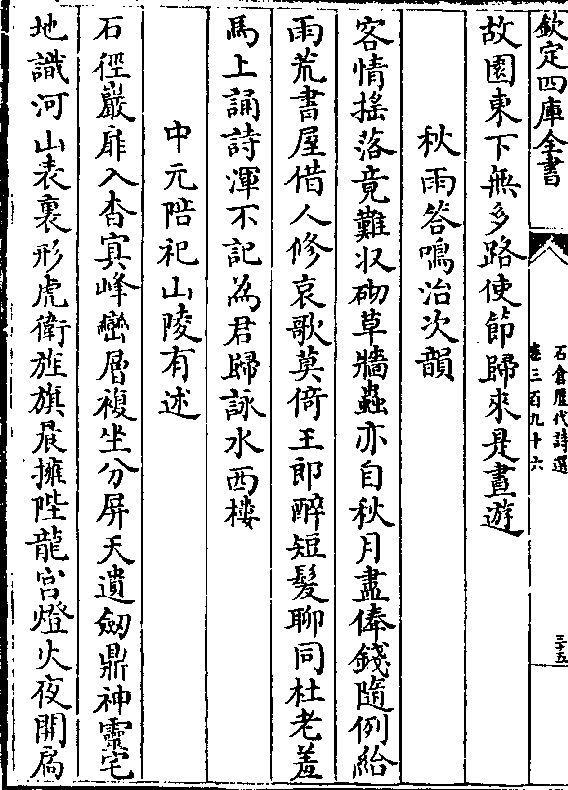 欽定四庫全書
石倉歷代詩選
卷三百九十六
三十五
故園東下無多路使節歸來是晝遊
秋雨答鳴治次韻
客情搖落竟難収砌草牆蟲亦自秋月盡俸錢隨例給
雨荒書屋借人修哀歌莫倚王郎醉短髪聊同杜老羞
馬上誦詩渾不記為君歸詠水西樓
中元陪祀山陵有述
石徑巖扉入杳冥峰巒層複坐分屏天遺劔鼎神靈宅
地識河山表裏形虎衛旌旗晨擁陛龍宫燈火夜開扄